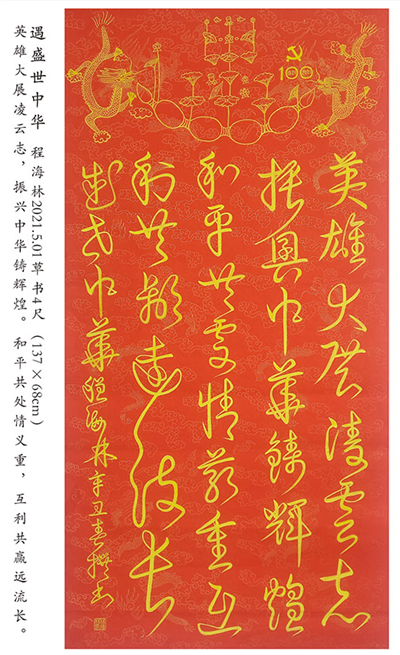 100
英雄大展凌雲志
振興中華鑄輝煌
和平共處情義重互
利共赢遠流長
盛世中華程海林辛丑春撰書
遇盛世中华 程海林2021.5.01草书4尺（137×68cm）
英雄大展凌云志，振兴中华铸辉煌。和平共处情义重，互利共赢远流长。